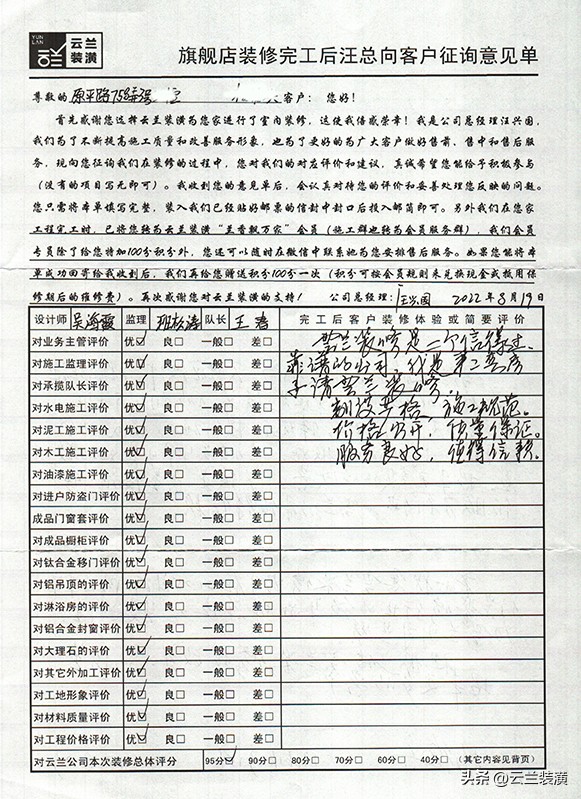 YUN LAN
云兰
装潢
旗舰店装修完工后汪总向客户征询意见单
尊敬的 原平路758弄 客户：您好！
首先感谢您选择云兰装潢为您家进行了室内装修，这使我倍感荣幸！我是公司总经理汪兴国，
我们为了不断提高施工质量和改善服务形象，也为了更好的为广大客户做好售前、售中和售后服
务，现向您征询我们在装修的过程中，您对我们的对应评价和建议，真诚希望您能给予积极参与
（没有的项目写无即可）。我收到您的意见单后，会认真对待您的评价和妥善处理您反映的问题。
您只需将本单填写完整，装入我们已经贴好邮票的信封中封口后投入邮筒即可。另外我们在您家
工程完工时，已将您转为云兰装潢“兰香飘万家”会员（施工群也转为会员服务群），我们会员
专员除了给您特加100分积分外，您还可以随时在微信中联系她为您安排售后服务。如果您能将本
单成功回寄给我收到后，我们再给您赠送积分100分一次（积分可按会员规则来兑换现金或抵用保
修期后的维修费）。再次感谢您对云兰装潢的支持！ 公司总经理：汪兴国 2022年8月19日
设计师 吴海霞 监理 班松涛 队长 王涛 完工后客户装修体验或简要评价
对业务主管评价 优☑ 良□ 一般□ 差□ 云兰装潢是一个信得过、
对施工监理评价 优☑ 良□ 一般□ 差□ 靠谱的公司，我是第二套房
对承揽队长评价 优☑ 良□ 一般□ 差□ 子请云兰装修，
对水电施工评价 优☑ 良□ 一般□ 差□ 制度严格，施工规范。
对泥工施工评价 优☑ 良□ 一般□ 差□ 价格公开，质量保证。
对木工施工评价 优☑ 良□ 一般□ 差□ 服务良好，值得信赖。
对油漆施工评价 优☑ 良□ 一般□ 差□
对进户防盗门评价 优☑ 良□ 一般□ 差□
成品门窗套评价 优☑ 良□ 一般□ 差□
对成品橱柜评价 优☑ 良□ 一般□ 差□
对钛合金移门评价 优☑ 良□ 一般□ 差□
对铝吊顶的评价 优☑ 良□ 一般□ 差□
对淋浴房的评价 优☑ 良□ 一般□ 差□
对铝合金封窗评价 优☑ 良□ 一般□ 差□
对大理石的评价 优☑ 良□ 一般□ 差□
对其它外加工评价 优☑ 良□ 一般□ 差□
对工地形象评价 优☑ 良□ 一般□ 差□
对材料质量评价 优☑ 良□ 一般□ 差□
对工程价格评价 优☑ 良□ 一般□ 差□
对云兰公司本次装修总体评分 95分☑ 90分□ 80分□ 70分□ 60分□ 40分□ （其它内容见背页）
头条@云兰装潢